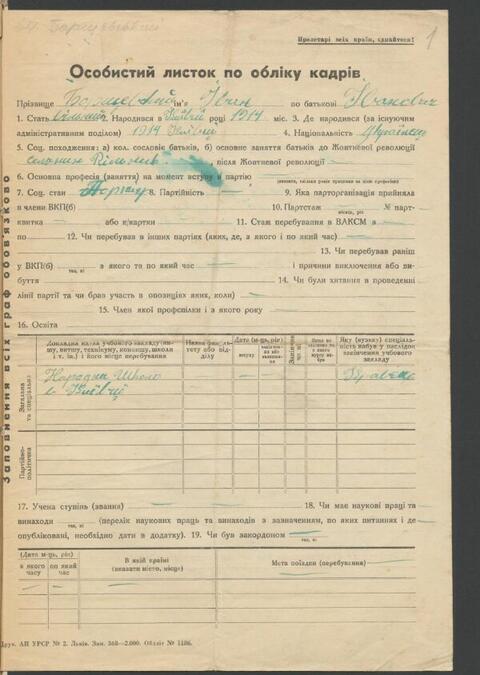 Пролетарі всіх країн, єднайтеся!
1
Особистий листок по обліку кадрів
Прізвище ім'я Іван по батькові Іванович
1. Стать 2. Народився в році 1914 міс. 3. Де народився (за існуючим
адміністративним поділом) 1914 4. Національність Українец
5. Соц. походження: а) кол. сословіє батьків, б) основне заняття батьків до Жовтневої революції
після Жовтневої революції —
6. Основна професія (заняття) на момент вступу в партію
7. Соц. стан 8. Партійність — 9. Яка парторганізація прийняла
в члени ВКП(б) 10. Партстаж № парт-
місяць, рік
квитка — або к/картки 11. Стаж перебування в ВЛКСМ з —
по — 12. Чи перебував в інших партіях (яких, де, з якого і по який час) —
13. Чи перебував раніш
у ВКП(б) — з якого та по який час — і причини виключення або ви-
так, ні
буття 14. Чи були хитання в проведенні
лінії партії та чи брав участь в опозиціях яких, коли) —
15. Член якої профспілки і з якого року
16. Освіта
Докладна назва учбового закладу (ви-
шу, втишу, технікуму, комвишу, школи
і т. ін.) і його місце перебування
Назва факуль-
тету або від-
ділу
Дата (м-ць, рік)
вступу
Закінчив
так, ні
Яку (вузьку) спеціаль-
ність набув у наслідок
закінчення учбового
закладу
Загальна
та спеціальна
Народна Школа
в
Партійно-
політична
17. Учена ступінь (звання) 18. Чи має наукові праці та
винаходи — (перелік наукових праць та винаходів з зазначенням, по яких питаннях і де
так, ні
опубліковані, необхідно дати в додатку). 19. Чи був закордоном —
так, ні
(Дата м-ць, рік)
з якого
часу
по який
час
В якій країні
(вказати місто, місце)
Мета поїздки (перебування)
Заповнення всіх граф обов'язково
Друк. АП УРСР № 2. Львів. Зам. 368—2.000. Обліт № 1186.